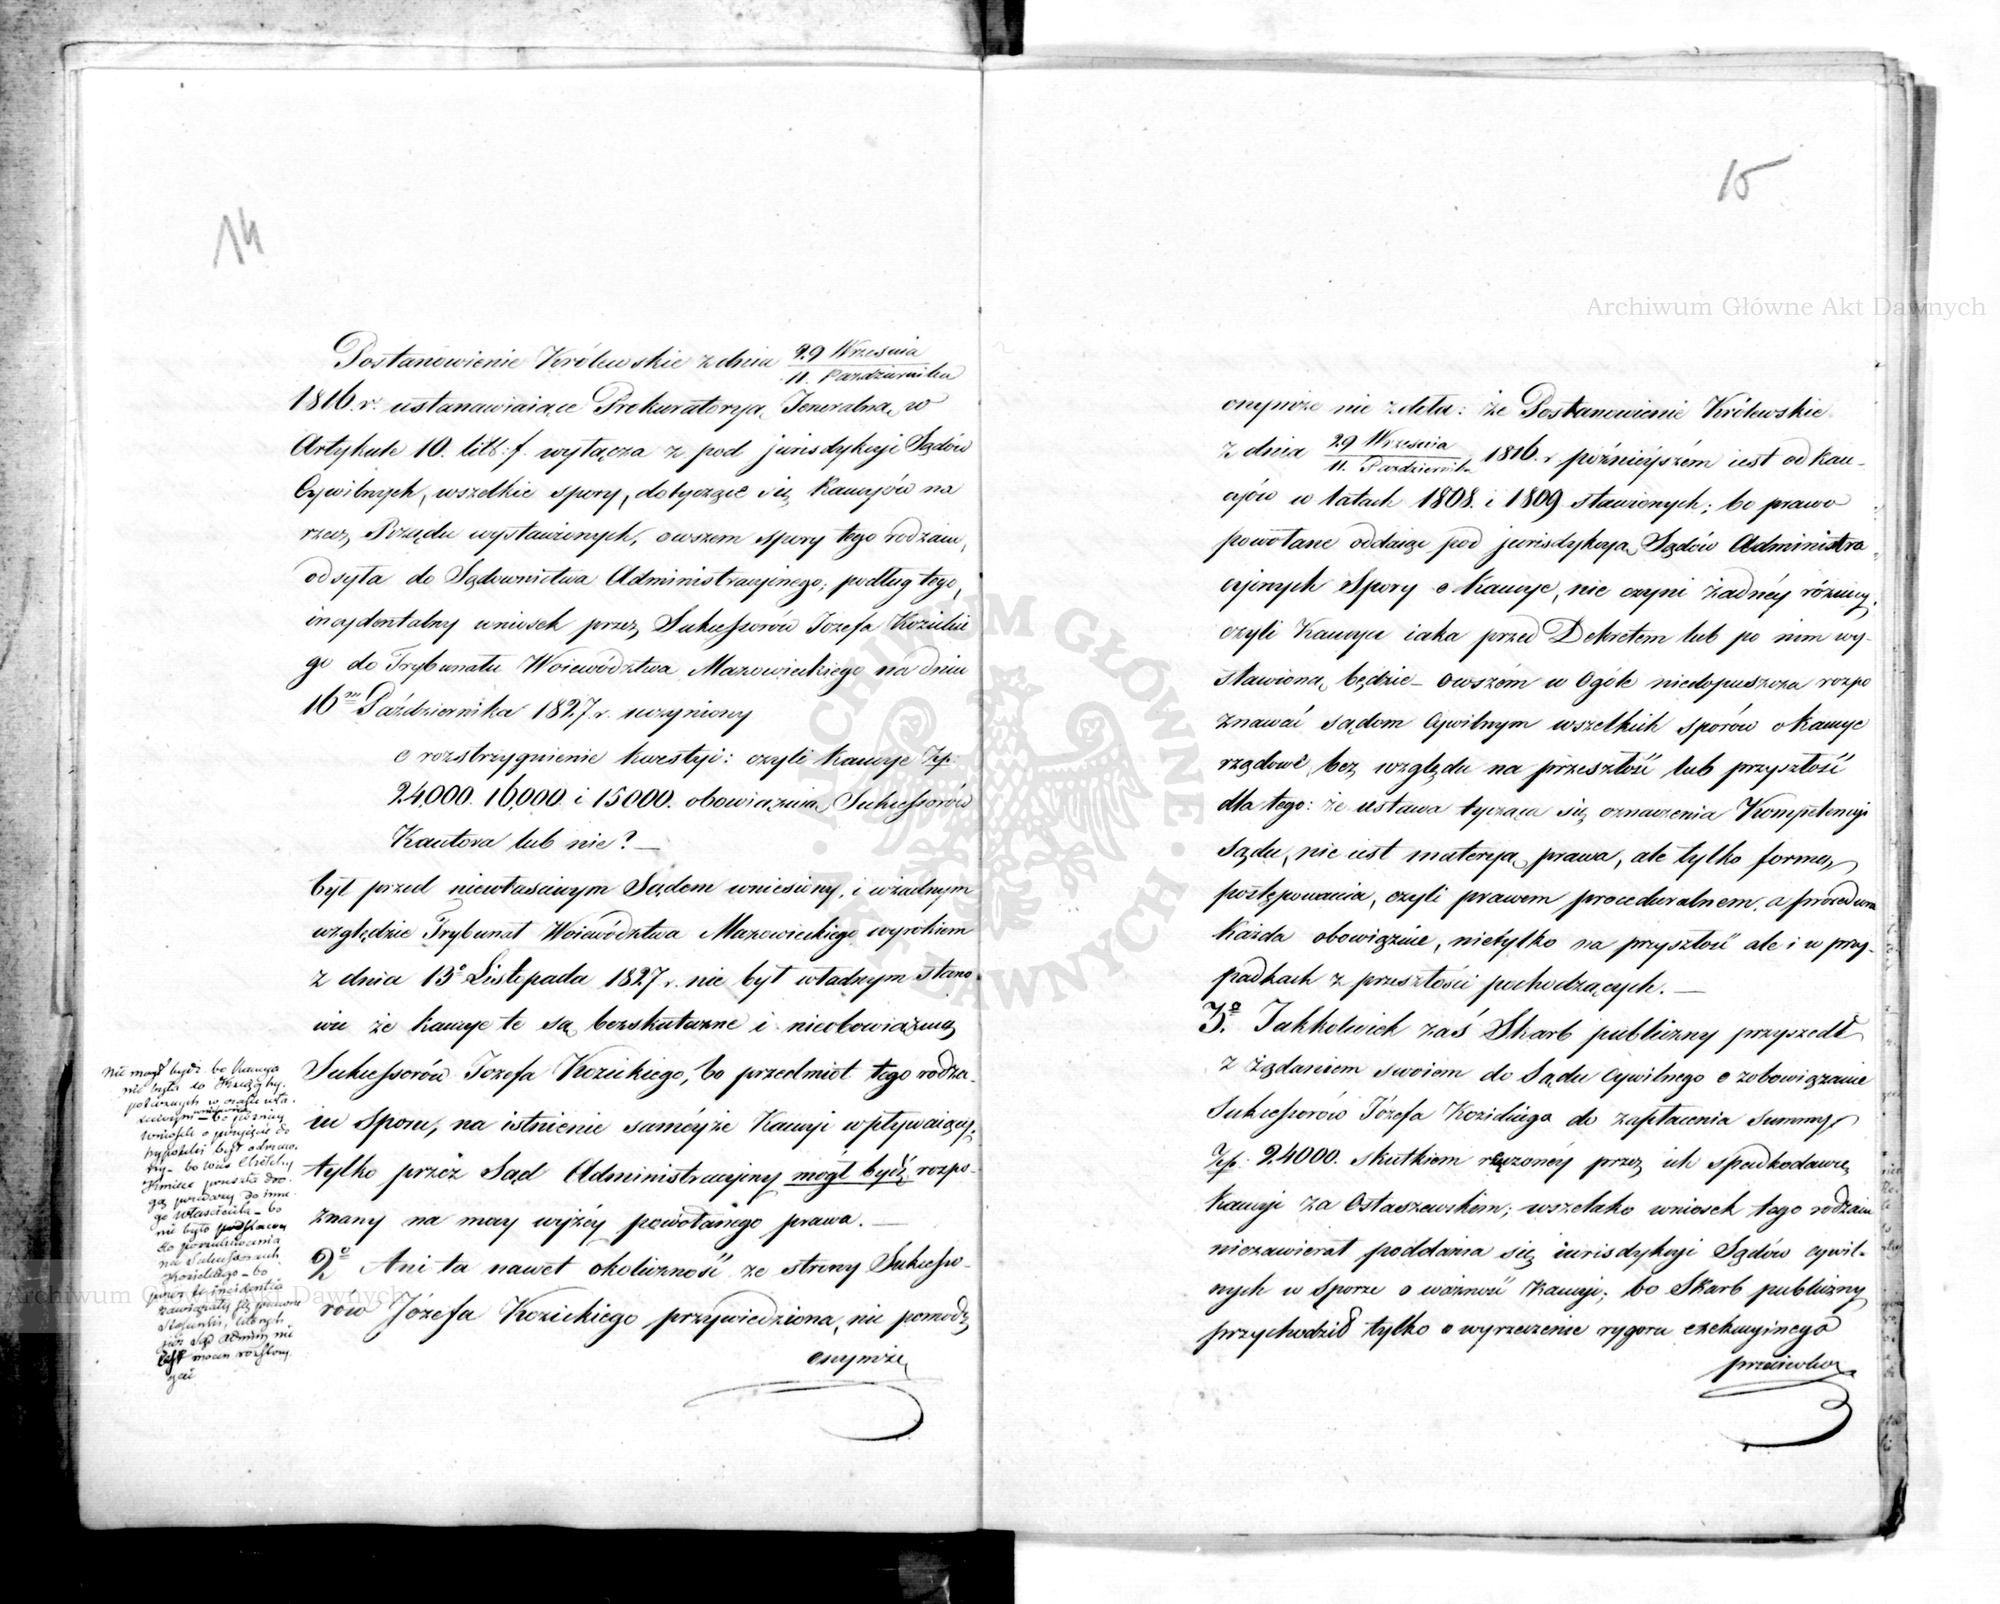 14
Postanowienie Królewskie z dnia 29 Września / 11. Października
1816. r. ustanawiaiące Prokuratoryą Jeneralną w
Artykule 10. litt: f. wyłącza z pod jurisdykcyi Sądów
Cywilnych, wszelkie spory, dotyczące się Kaucyów na
rzecz Rządu wystawionych, owszem spory tego rodzaiu,
odsyła do Sądownictwa Administracyinego; podług tego,
incydentalny wniosek przez Sukcessorów Józefa Kozickie
go do Trybunału Woiewództwa Mazowieckiego na dniu
16 Października 1827. r. uczyniony
o rozstrzygnienie kwestyi: czyli Kaucye Złp:
24000. 16,000. i 15000. obowiązuią Sukcessorów
Kautora lub nie? —
był przed niewłaściwym Sądem wniesiony, i w żadnym
względzie Trybunał Woiewództwa Mazowieckiego wyrokiem
z dnia 13º Listopada 1827. r. nie był władnym stano
wić że kaucye te są bezskuteczne i nieobowiązuią
Sukcessorów Józefa Kozickiego, bo przedmiot tego rodza-
iu sporu, na istnienie saméyże Kaucyi wpływaiący,
tylko przéz Sąd Administracyiny mógł bydź rozpo-
znany na mocy wyżéy powołanego prawa. —
2º Ani ta nawet okoliczność ze strony Sukcesso-
rów Józefa Kozickiego przywiedziona, nic pomodz
onymże
Nie mógł bydź bo Kaucya
nie była w Księdze hy-
potecznych w czasie wła-
ściwym — bo późniey
wniosek o przyięcie do
hypoteki był odrzuco-
ny — bo wieś
poszła dro-
gą przedaży do inne-
go właściciela — bo
nie było
do poszukiwania
na Sukcessorach
Kozickiego — bo
przez te incidentia
zawiązały się prawne
stosunki, których
już Sąd Admin: nie
był mocen roztrzą-
sać
15
onymże nie zdoła: że Postanowienie Królewskie
z dnia 29 Września / 11. Października 1816. r późnieyszém iest od Kau-
cyów w latach 1808. i 1809 stawionych; bo prawo
powołane oddaiąc pod jurisdykcyą Sądów Administra
cyinych Spory o Kaucye, nie czyni żadnéy różnicy,
czyli Kaucya iaka przed Dekretem lub po nim wy-
stawioną będzie — Owszém w Ogóle niedopuszcza rozpo
znawać sądom Cywilnym wszelkich sporów o Kaucye
rządowé, bez względu na przeszłość lub przyszłość
dla tego: że ustawa tycząca się oznaczenia Kompetencyi
Sądu, nie iest materyą prawa, ale tylko formą
postępowania, czyli prawem proceduralnem, a procedura
Każda obowiązuie, nietylko na przyszłość ale i w przy-
padkach z przeszłości pochodzących. —
3º. Jakkolwiek zaś Skarb publiczny przyszedł
z żądaniem swoiem do Sądu Cywilnego o zobowiązanie
Sukcessorów Józefa Kozickiego do zapłacenia summy
Złp: 24000. skutkiem ręczonéy przez ich spadkodawcę
Kaucyi za Ostaszewskim; wszelako wniosek tego rodzaiu
niezawierał poddania się iurisdykcyi Sądów cywil-
nych w Sporze o ważność Kaucyi; bo Skarb publiczny
przychodził tylko o wyrzeczenie rygoru exekucyinego
przeciwko
Archiwum Główne Akt Dawnych
Archiwum Główne Akt Dawnych
ARCHIWUM GŁÓWNE AKT DAWNYCH